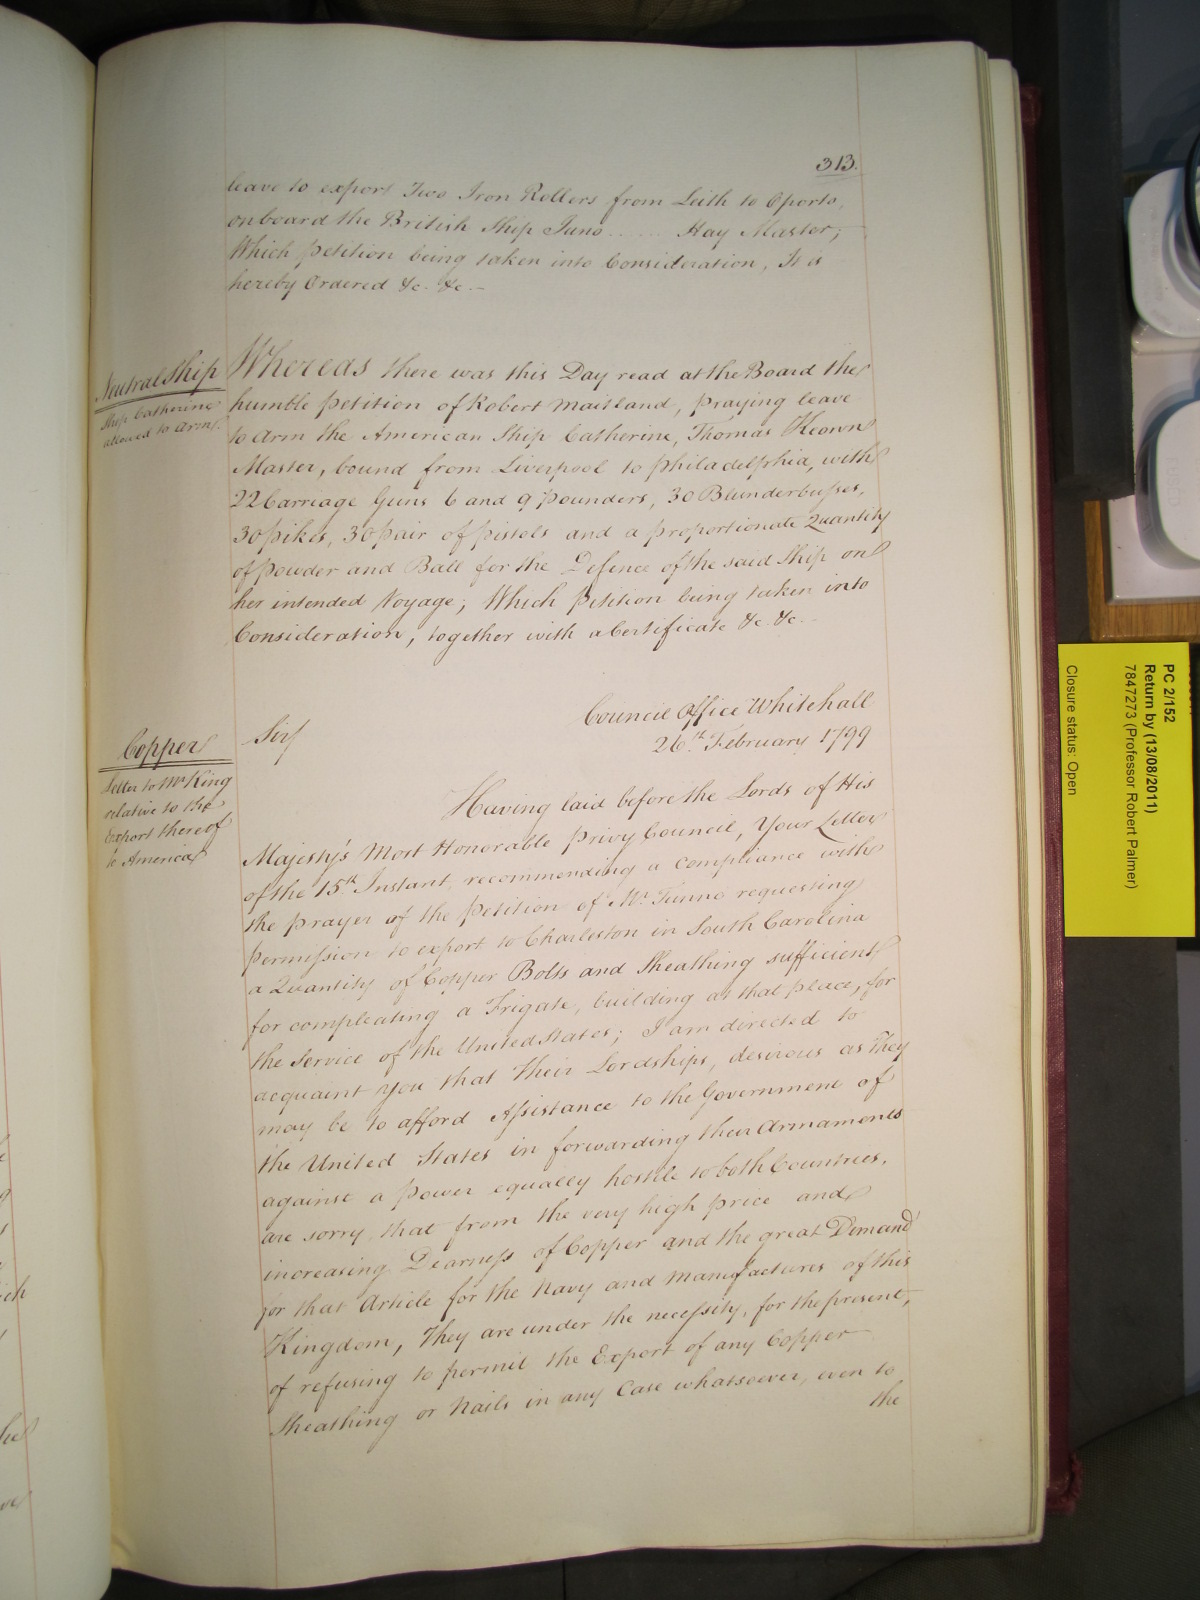 313.
leave to export Two Iron Rollers from Leith to Oporto,
onboard the British Ship Juno ...... Hay Master;
Which petition being taken into Consideration, It is
hereby Ordered &c. &c.-
Neutral Ship
Ship Catherine
allowed to Arm.
Whereas there was this Day read at the Board the
humble petition of Robert Maitland, praying leave
to Arm the American Ship Catherine, Thomas Keown
Master, bound from Liverpool to Philadelphia, with
22 Carriage Guns 6 and 9 pounders, 30 Blunderbusses,
30 pikes, 30 pair of pistols and a proportionate Quantity
of powder and Ball for the Defence of the said Ship on
her intended Voyage; Which petition being taken into
Consideration, together with a Certificate &c. &c.-
Council Office Whitehall
26th February 1799
Copper
Letter to Mr King
relative to the
Export thereof
to America
Sir
Having laid before the Lords of His
Majesty's Most Honorable Privy Council, Your Letter
of the 15th Instant, recommending a compliance with
the prayer of the Petition of Mr Tunno requesting
permission to export to Charleston in South Carolina
a Quantity of Copper Bolts and Sheathing sufficient
for compleating a Frigate, building at that place, for
the Service of the United States; I am directed to
acquaint You that Their Lordships, desirous as They
may be to afford Assistance to the Government of
the United States in forwarding their Armaments
against a power equally hostile to both Countries,
are sorry, that from the very high price and
increasing Dearness of Copper and the great Demand
for that Article for the Navy and Manufactures of this
Kingdom, They are under the necessity, for the present,
of refusing to permit the Export of any Copper
Sheathing or Nails in any Case whatsoever, even to
the
PC 2/152
Return by (13/08/2011)
7847273 (Professor Robert Palmer)
Closure status: Open